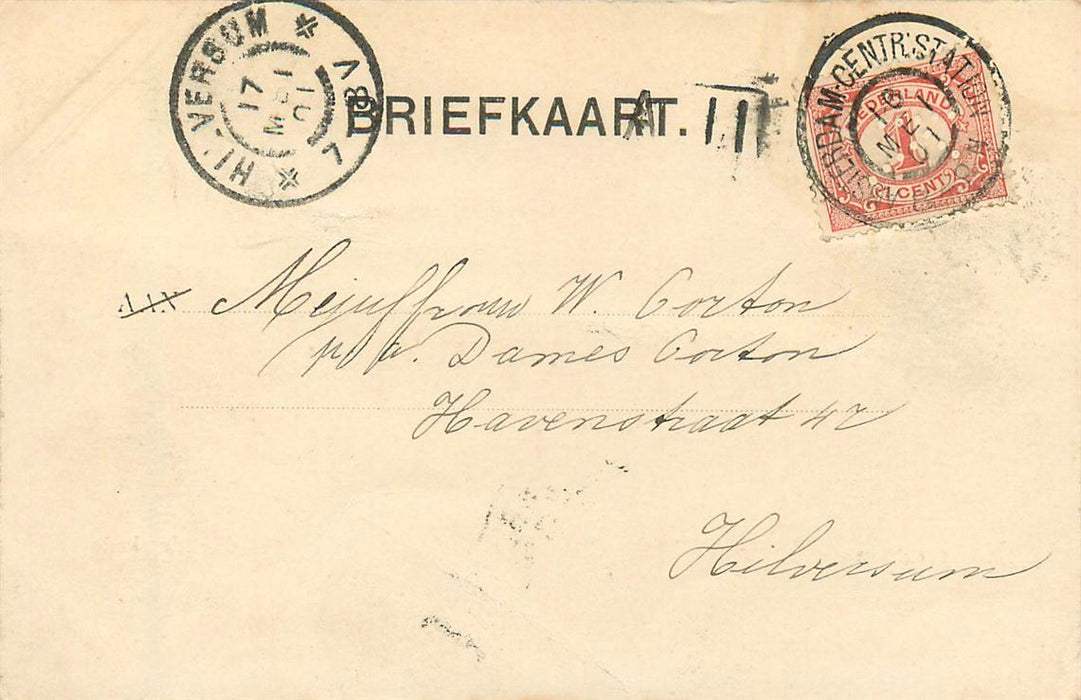 HILVERSUM
17 MEI 01
7-8V
BRIEFKAART.
AMSTERDAM-CENTR:STATION
16 MEI 01
NEDERLAND
1
(1 CENT)
AAN Mejuffrouw W. Corton
p/a. Dames Corton
Havenstraat 42
Hilversum